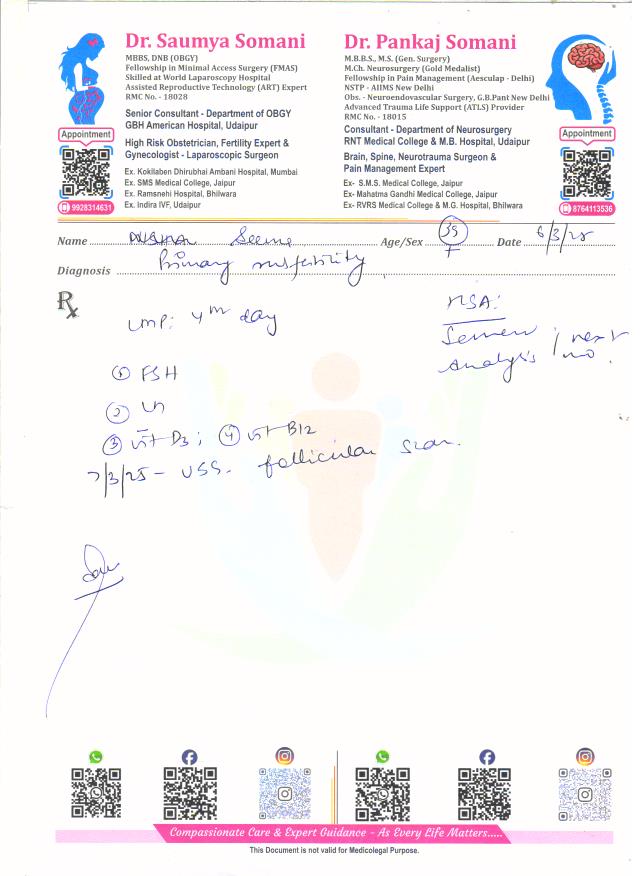 Dr. Saumya Somani
MBBS, DNB (OBGY)
Fellowship in Minimal Access Surgery (FMAS)
Skilled at World Laparoscopy Hospital
Assisted Reproductive Technology (ART) Expert
RMC No. - 18028
Senior Consultant - Department of OBGY
GBH American Hospital, Udaipur
High Risk Obstetrician, Fertility Expert &
Gynecologist - Laparoscopic Surgeon
Ex. Kokilaben Dhirubhai Ambani Hospital, Mumbai
Ex. SMS Medical College, Jaipur
Ex. Ramsnehi Hospital, Bhilwara
Ex. Indira IVF, Udaipur
Appointment
9928314631
Dr. Pankaj Somani
M.B.B.S., M.S. (Gen. Surgery)
M.Ch. Neurosurgery (Gold Medalist)
Fellowship in Pain Management (Aesculap - Delhi)
NSTP - AIIMS New Delhi
Obs. - Neuroendovascular Surgery, G.B.Pant New Delhi
Advanced Trauma Life Support (ATLS) Provider
RMC No. - 18015
Consultant - Department of Neurosurgery
RNT Medical College & M.B. Hospital, Udaipur
Brain, Spine, Neurotrauma Surgeon &
Pain Management Expert
Ex- S.M.S. Medical College, Jaipur
Ex- Mahatma Gandhi Medical College, Jaipur
Ex- RVRS Medical College & M.G. Hospital, Bhilwara
Appointment
8764113536
Name Age/Sex 35 F Date 6/3/25
Diagnosis Primary infertility
Rx
LMP: 4th day
HSA:
Semen
Analysis / next
① FSH
② LH
③ Vit D3; ④ Vit B12
7/3/25 - USS. follicular scan.
Compassionate Care & Expert Guidance - As Every Life Matters.....
This Document is not valid for Medicolegal Purpose.